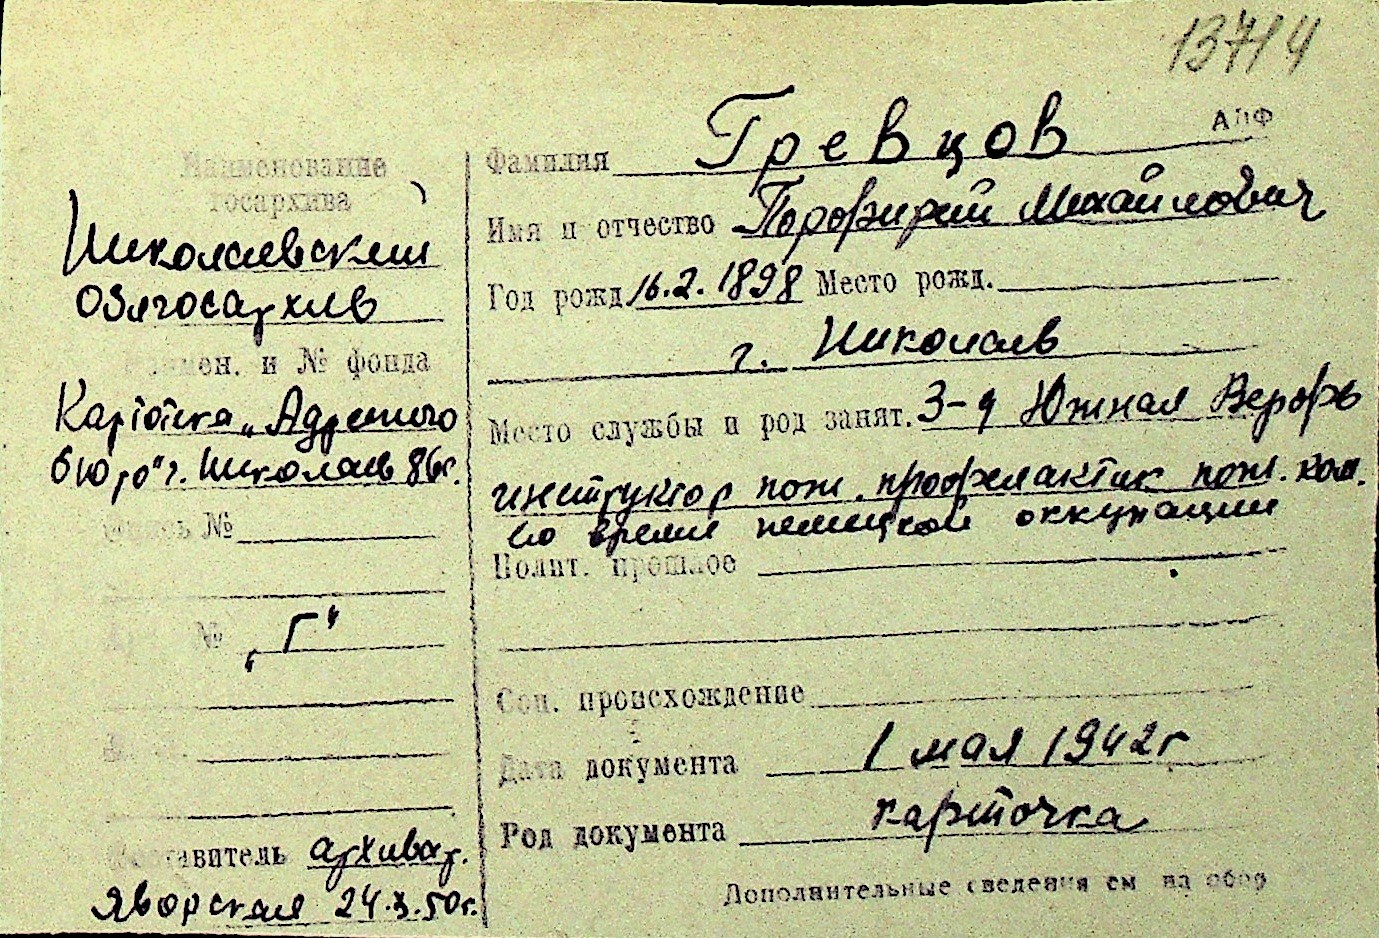 13714
АПФ
Наименование
госархива
Николаевский
Облгосархив
Наимен. и № фонда
Картотека „Адресного
бюро" г. Николаев 86г.
Опись №
Арх. № „Г"
Составитель архивар.
Яворская 24.X.50г.
Фамилия Гревцов
Имя и отчество Порфирий Михайлович
Год рожд. 16.2.1898 Место рожд.
г. Николаев
Место службы и род занят. 3-я Южная Верфь
инструктор пож. профилактик пож. ком.
во время немецкой оккупации
Полит. прошлое
Соц. происхождение
Дата документа 1 мая 1942г
Род документа карточка
Дополнительные сведения см на обор